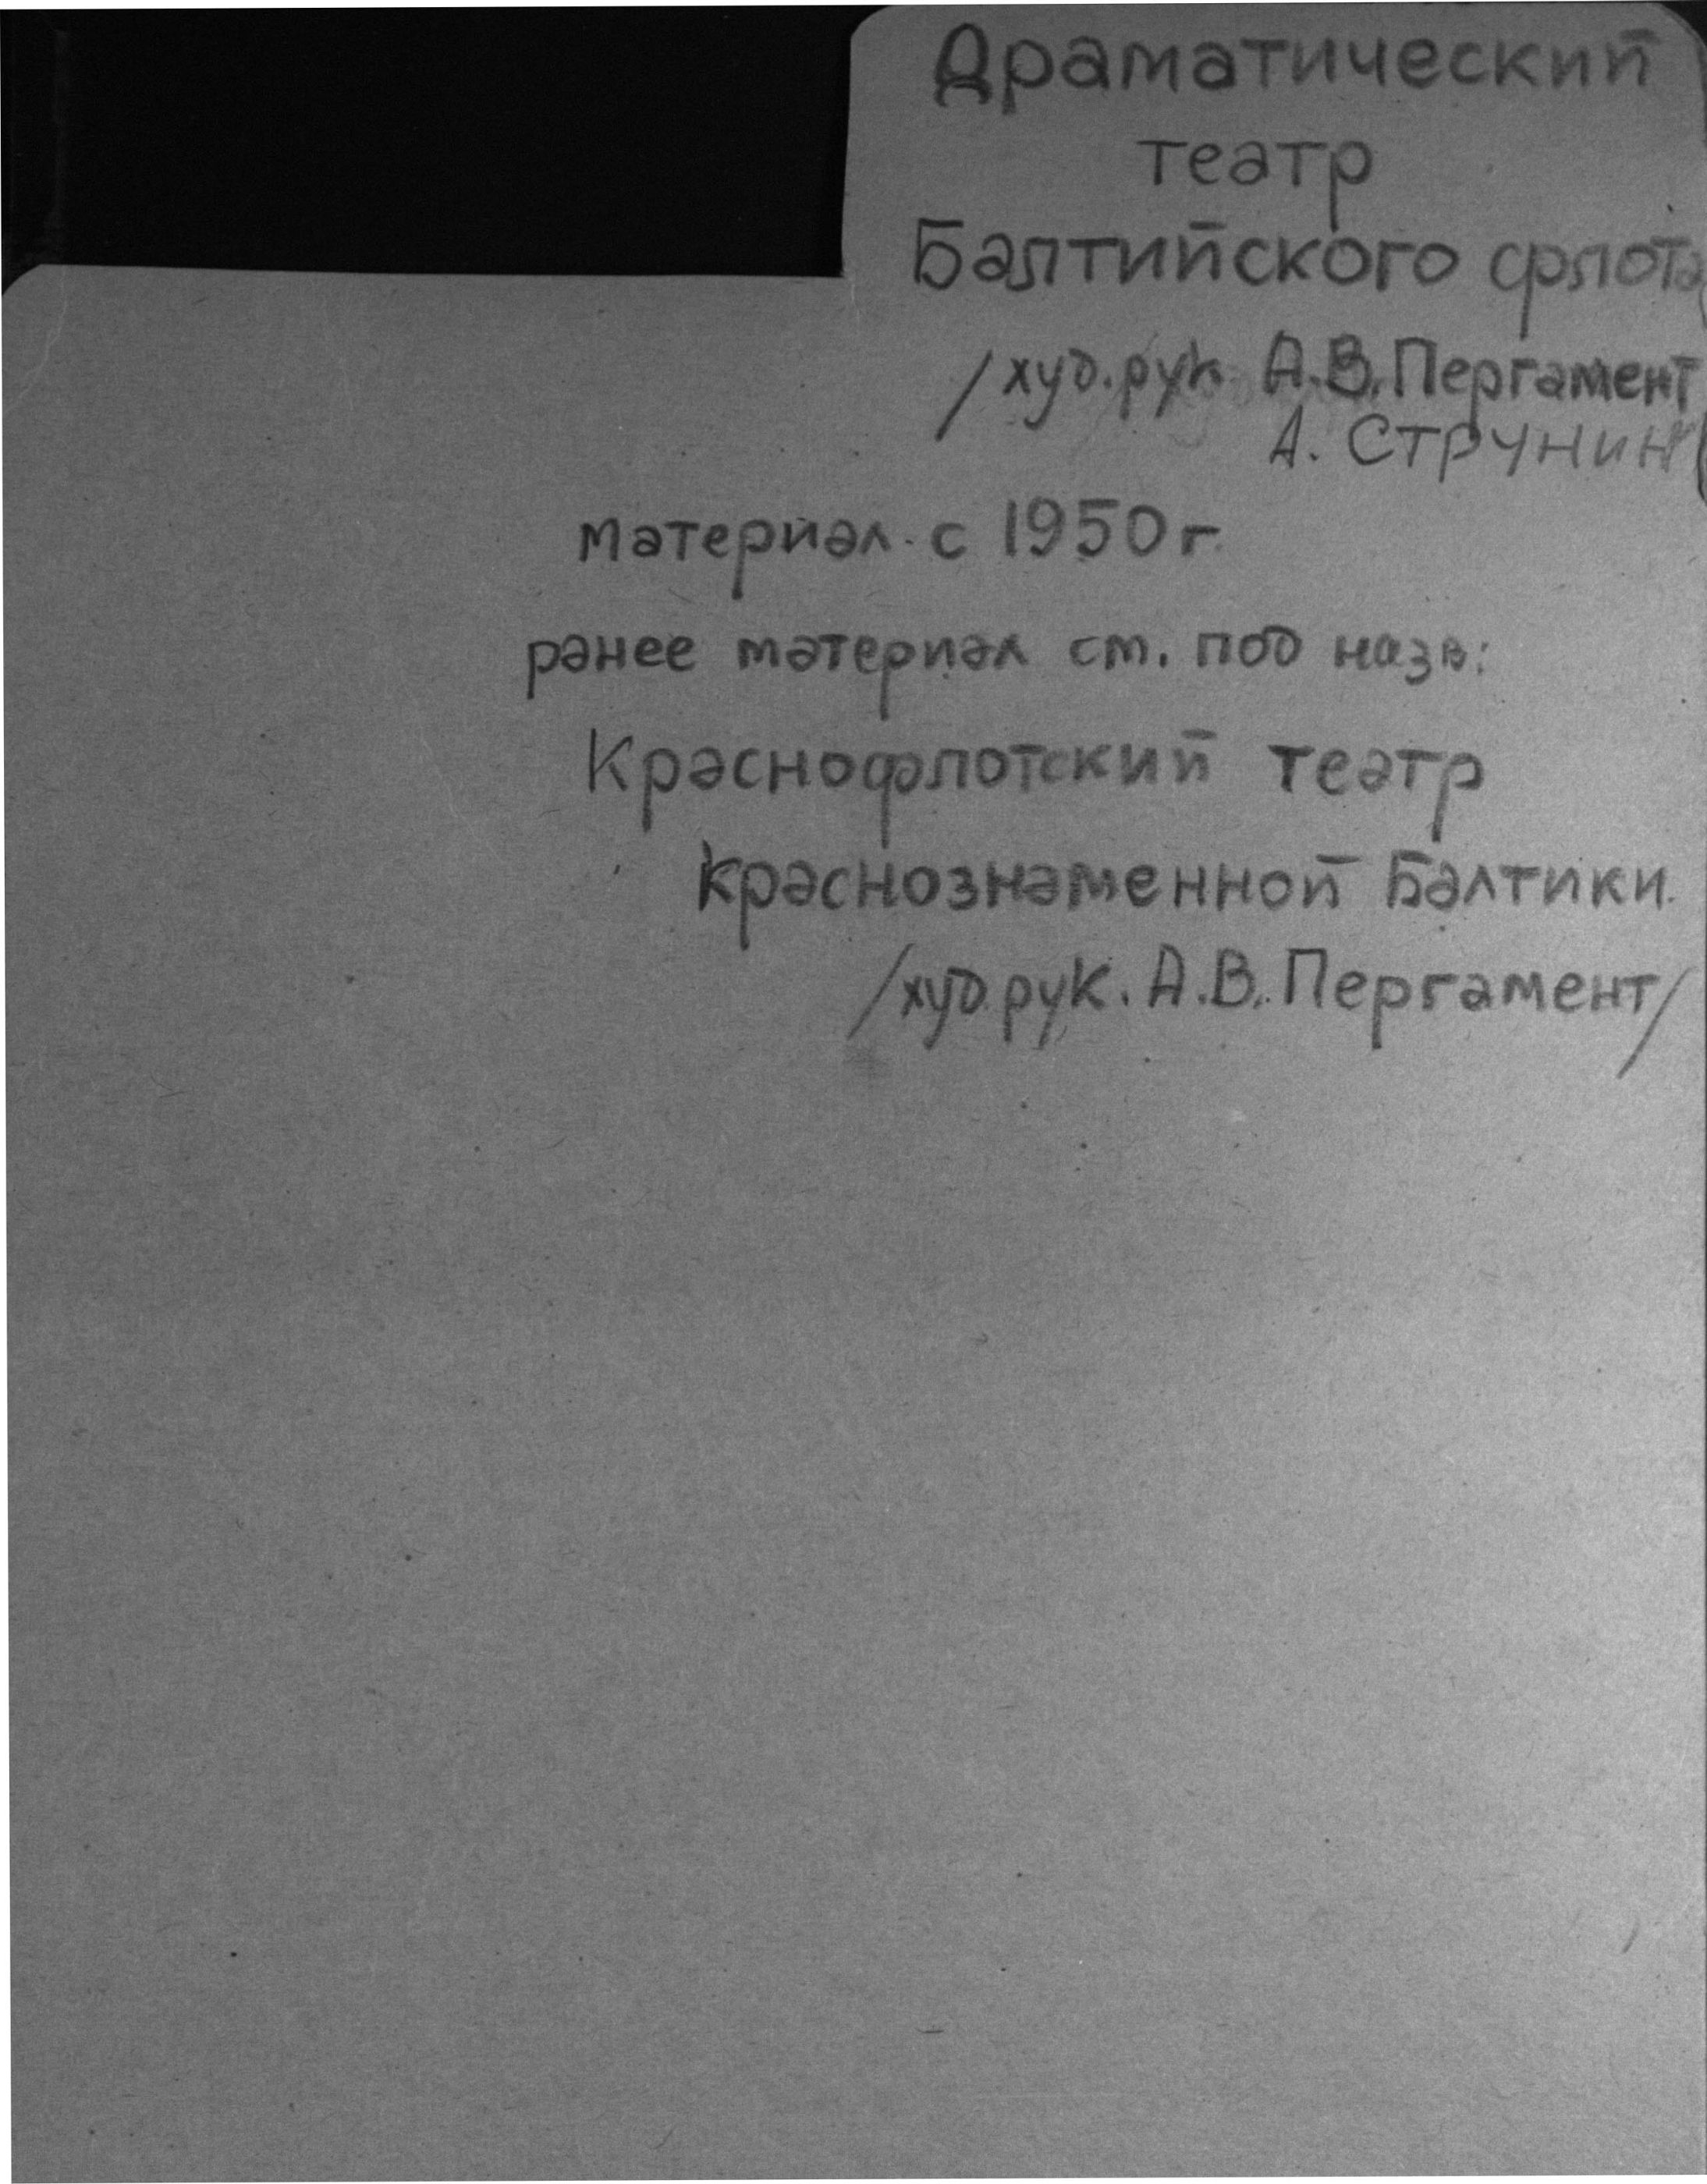 Драматический
театр
Балтийского флота
/худ.рук А.В.Пергамент
А. Струнин
материал с 1950 г.
ранее материал см. под назв:
Краснофлотский театр
краснознаменной Балтики.
/худ.рук. А.В.Пергамент/